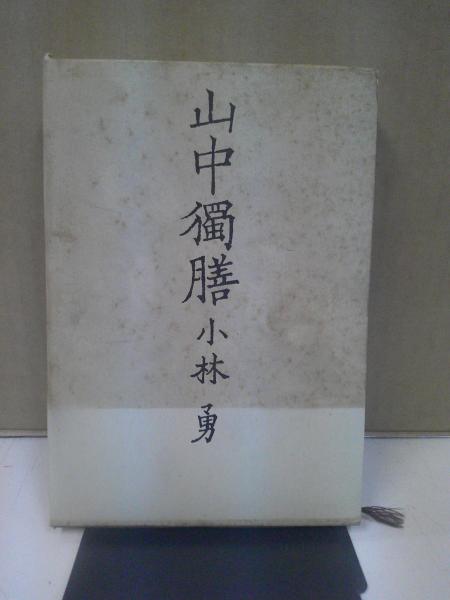 山中獨膳
小林勇